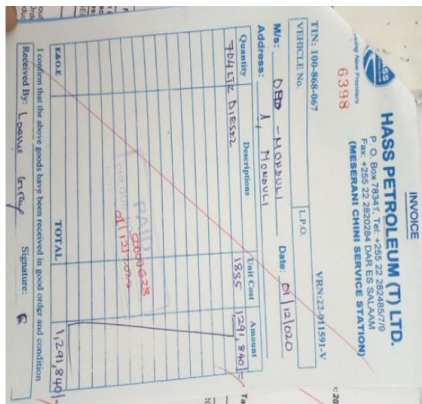 INVOICE
HASS PETROLEUM (T) LTD.
P. O. Box 78341, Tel: +255 22 2824857/7/9
Fax: +255 22 2820284 DAR ES SALAAM
(MESERANI CHINI SERVICE STATION)
6398
TIN: 100-868-067 VRN:22-011591-V
VEHICLE No. L.P.O.
M/s: DED - MONDULI Date: 01/12/020
Address: MONDULI
Quantity Descriptions Unit Cost Amount
704 LTR DIESEL 1835 1,291,840/-
PAID
E&O.E TOTAL 1,291,840/-
I confirm that the above goods have been received in good order and condition
Received By: Signature: